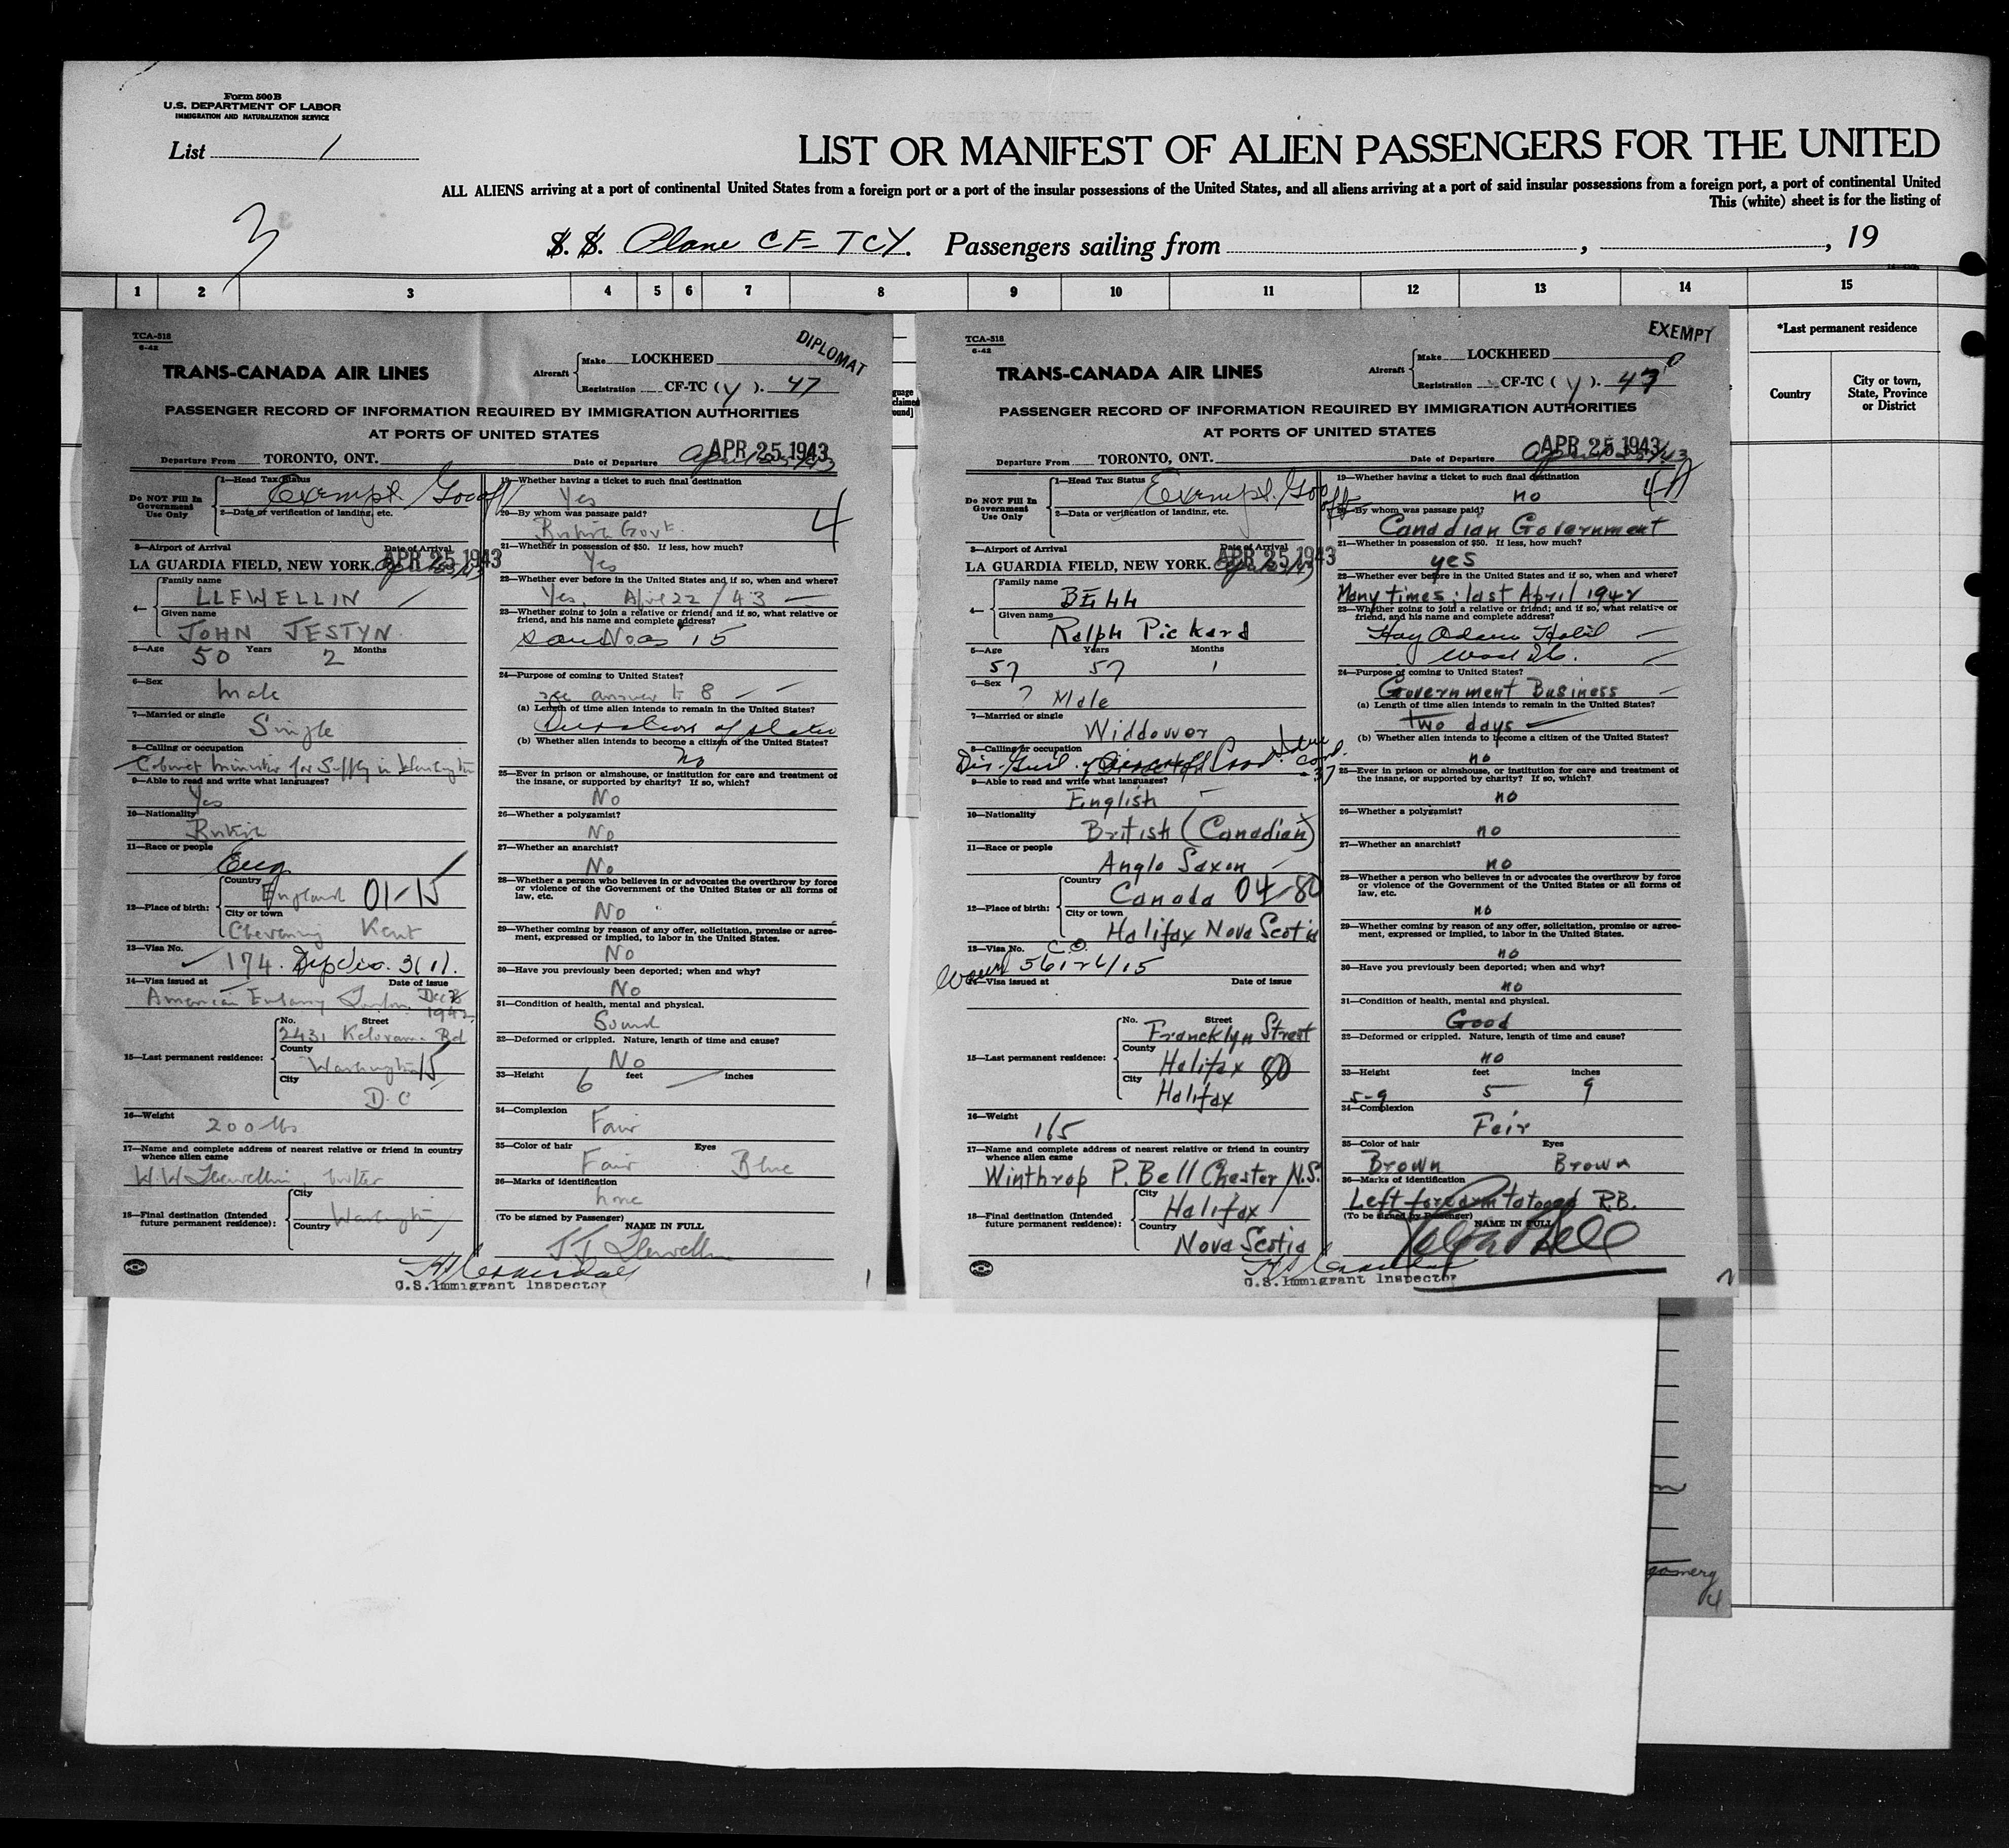 Form 500B
U.S. DEPARTMENT OF LABOR
IMMIGRATION AND NATURALIZATION SERVICE
List 1
3
LIST OR MANIFEST OF ALIEN PASSENGERS FOR THE UNITED
ALL ALIENS arriving at a port of continental United States from a foreign port or a port of the insular possessions of the United States, and all aliens arriving at a port of said insular possessions from a foreign port, a port of continental United
This (white) sheet is for the listing of
S. S. Plane CF-TCY. Passengers sailing from , , 19
1 2 3 4 5 6 7 8 9 10 11 12 13 14 15
*Last permanent residence
Country
City or town, State, Province or District
TCA-518
6-42
DIPLOMAT
TRANS-CANADA AIR LINES
Aircraft
Make LOCKHEED
Registration CF-TC (Y). 47
PASSENGER RECORD OF INFORMATION REQUIRED BY IMMIGRATION AUTHORITIES
AT PORTS OF UNITED STATES
Departure From TORONTO, ONT.
Date of Departure April 25/43
APR 25 1943
Do NOT Fill In
Government
Use Only
1—Head Tax Status
Exempt. Gov off
2—Data or verification of landing, etc.
3—Airport of Arrival
Date of Arrival
LA GUARDIA FIELD, NEW YORK.
APR 25 1943
4—
Family name
LLEWELLIN
Given name
JOHN JESTYN.
5—Age 50 Years 2 Months
6—Sex
Male
7—Married or single
Single
8—Calling or occupation
Cabinet Minister for Supply in Washington
9—Able to read and write what languages?
Yes
10—Nationality
British
11—Race or people
Eng
12—Place of birth:
Country
England 01-15
City or town
Chevening Kent
13—Visa No.
174. Diplo. 3(1).
14—Visa issued at
Date of issue
American Embassy London. Dec
1942
15—Last permanent residence:
No. Street
2431 Kalorama Rd
County
Washington 15
City
D.C
16—Weight
200 lbs
17—Name and complete address of nearest relative or friend in country
whence alien came
W.W Llewellin,
18—Final destination (Intended
future permanent residence):
City
Washington
Country
U.S. Immigrant Inspector
19—Whether having a ticket to such final destination
Yes
20—By whom was passage paid?
British Govt.
4
21—Whether in possession of $50. If less, how much?
Yes
22—Whether ever before in the United States and if so, when and where?
Yes, April 22/43
23—Whether going to join a relative or friend; and if so, what relative or
friend, and his name and complete address?
same No as 15
24—Purpose of coming to United States?
see answer to 8
(a) Length of time alien intends to remain in the United States?
Duration of status
(b) Whether alien intends to become a citizen of the United States?
No
25—Ever in prison or almshouse, or institution for care and treatment of
the insane, or supported by charity? If so, which?
No
26—Whether a polygamist?
No
27—Whether an anarchist?
No
28—Whether a person who believes in or advocates the overthrow by force
or violence of the Government of the United States or all forms of
law, etc.
No
29—Whether coming by reason of any offer, solicitation, promise or agree-
ment, expressed or implied, to labor in the United States.
No
30—Have you previously been deported; when and why?
No
31—Condition of health, mental and physical.
Sound
32—Deformed or crippled. Nature, length of time and cause?
No
33—Height 6 feet — inches
34—Complexion
Fair
35—Color of hair Eyes
Fair Blue
36—Marks of identification
none
(To be signed by Passenger)
NAME IN FULL
J.J. Llewellin
1
TCA-518
6-42
EXEMPT
TRANS-CANADA AIR LINES
Aircraft
Make LOCKHEED
Registration CF-TC (Y). 47
PASSENGER RECORD OF INFORMATION REQUIRED BY IMMIGRATION AUTHORITIES
AT PORTS OF UNITED STATES
Departure From TORONTO, ONT.
Date of Departure April 25/43
APR 25 1943
Do NOT Fill In
Government
Use Only
1—Head Tax Status
Exempt. Gov off
2—Data or verification of landing, etc.
3—Airport of Arrival
Date of Arrival
LA GUARDIA FIELD, NEW YORK.
APR 25 1943
4—
Family name
BELL
Given name
Ralph Pickard
5—Age Years Months
57 57 1
6—Sex
Male
7—Married or single
Widdower
8—Calling or occupation
Dir. Genl. of Aircraft Prod.
9—Able to read and write what languages?
English
10—Nationality
British (Canadian)
11—Race or people
Anglo Saxon
12—Place of birth:
Country
Canada 04-80
City or town
Halifax Nova Scotia
13—Visa No. C.O.
56126/15
14—Visa issued at
Date of issue
15—Last permanent residence:
No. Street
Francklyn Street
County
Halifax 80
City
Halifax
16—Weight
165
17—Name and complete address of nearest relative or friend in country
whence alien came
Winthrop P. Bell Chester N.S.
18—Final destination (Intended
future permanent residence):
City
Halifax
Country
Nova Scotia
U.S. Immigrant Inspector
19—Whether having a ticket to such final destination
no
20—By whom was passage paid?
Canadian Government
21—Whether in possession of $50. If less, how much?
yes
22—Whether ever before in the United States and if so, when and where?
Many times; last April 1942
23—Whether going to join a relative or friend; and if so, what relative or
friend, and his name and complete address?
Hay Adams Hotel
Wash DC.
24—Purpose of coming to United States?
Government Business
(a) Length of time alien intends to remain in the United States?
Two days
(b) Whether alien intends to become a citizen of the United States?
no
25—Ever in prison or almshouse, or institution for care and treatment of
the insane, or supported by charity? If so, which?
no
26—Whether a polygamist?
no
27—Whether an anarchist?
no
28—Whether a person who believes in or advocates the overthrow by force
or violence of the Government of the United States or all forms of
law, etc.
no
29—Whether coming by reason of any offer, solicitation, promise or agree-
ment, expressed or implied, to labor in the United States.
no
30—Have you previously been deported; when and why?
no
31—Condition of health, mental and physical.
Good
32—Deformed or crippled. Nature, length of time and cause?
no
33—Height feet inches
5-9 5 9
34—Complexion
Fair
35—Color of hair Eyes
Brown Brown
36—Marks of identification
Left forearm tatooed R.B.
(To be signed by Passenger)
NAME IN FULL
Ralph P Bell
2
gomery
4